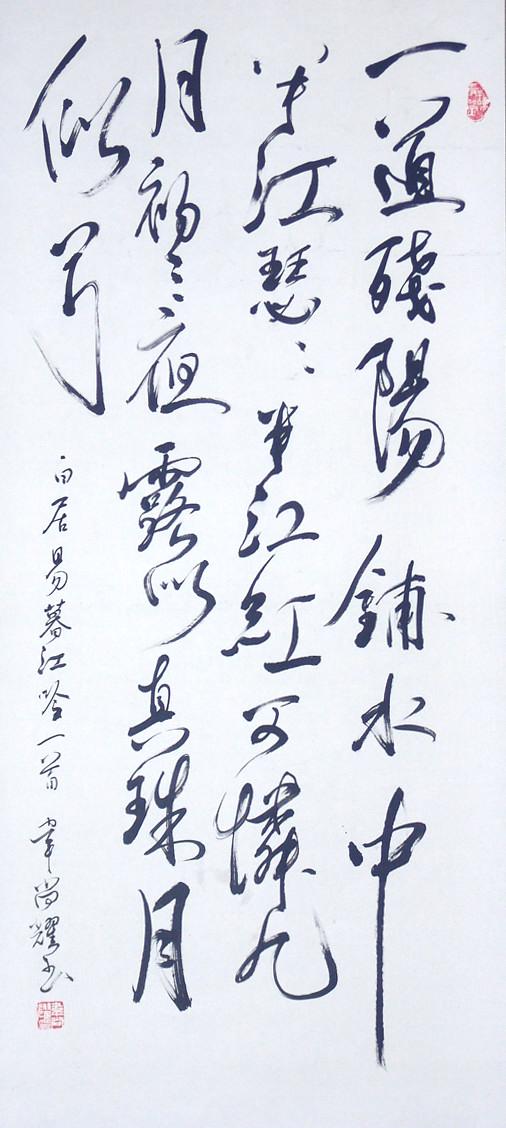 一道殘陽鋪水中
半江瑟〻半江紅可憐九
月初三夜露似真珠月
似弓
白居易暮江吟一首 韋尚耀书